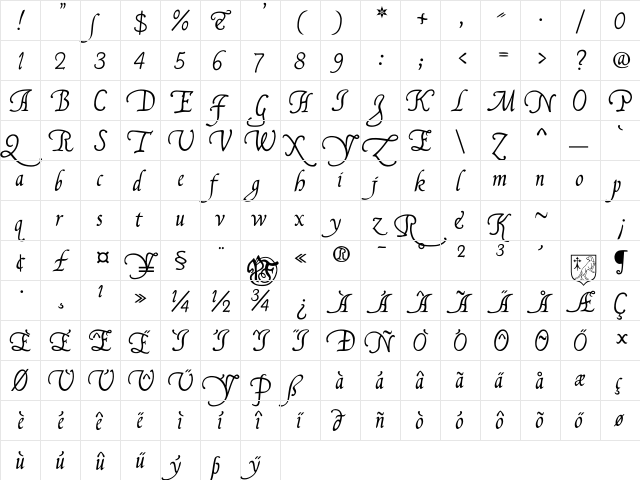 ! " ʃ $ % & ' ( ) * + , - . / 0
1 2 3 4 5 6 7 8 9 : ; < = > ? @
A B C D E F G H I J K L M N O P
Q R S T U V W X Y Z E \ Z ^ _ `
a b c d e f g h i j k l m n o p
q r s t u v w x y z R ¿ K ~ ¡
¢ £ ¤ ¥ § ¨ « ® ¯ ° 2 3 ' ¶
· ¸ 1 » ¼ ½ ¾ ¿ À Á Â Ã Ä Å Æ Ç
È É Ê Ë Ì Í Î Ï Ð Ñ Ò Ó Ô Õ Ö x
Ø Ù Ú Û Ü Ý Þ ß à á â ã ä å æ ç
è é ê ë ì í î ï ð ñ ò ó ô õ ö ø
ù ú û ü ý þ ÿ